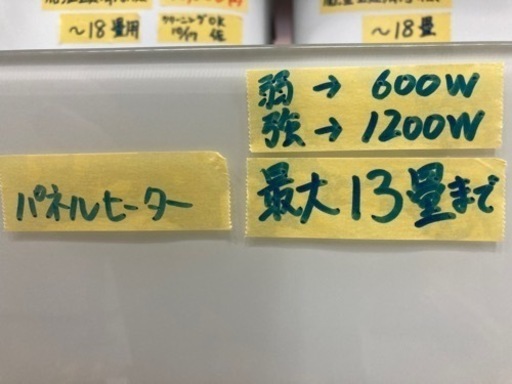 ～18畳用
クリーニングOK
～18畳
弱→600W
強→1200W
パネルヒーター
最大13畳まで